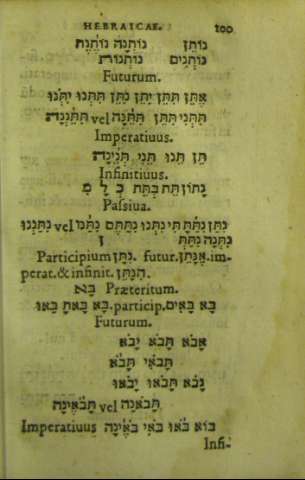 HEBRAICAE. 100
נוֹתֵן נוֹתְנָה נוֹתֶנֶת
נוֹתְנִים נוֹתְנוֹת
Futurum.
אֶתֵּן תִּתֵּן יִתֵּן נִתֵּן תִּתְּנוּ יִתְּנוּ
תִּתְּנִי תִּתֵּן תִּתֵּנָּה vel תִּתֵּנְנָה
Imperatiuus.
תֵּן תְּנוּ תְּנִי
Infinitiuus.
נָתוֹן תֵּת בְּתֵת כְ לְ מִ
Passiua.
נִתַּן נִתַּתָּ נִתַּנְתֶּם vel נִתַּנּוּ
Participium נִתָּן. futur. אֶנָּתֵן. im-
perat. & infinit. הִנָּתֵן.
בָּא Præteritum.
בָּא בָאִים. particip. בָּא בָאתָ בָּאוּ
Futurum.
אָבֹא תָּבֹא יָבֹא
תָּבֹאִי תָּבֹא
נָבֹא תָּבֹאוּ יָבֹאוּ
תָּבֹאנָה vel תָּבֹאֶינָה
Imperatiuus בּוֹא בֹּאוּ בֹּאִי בֹּאֶינָה
Infi-